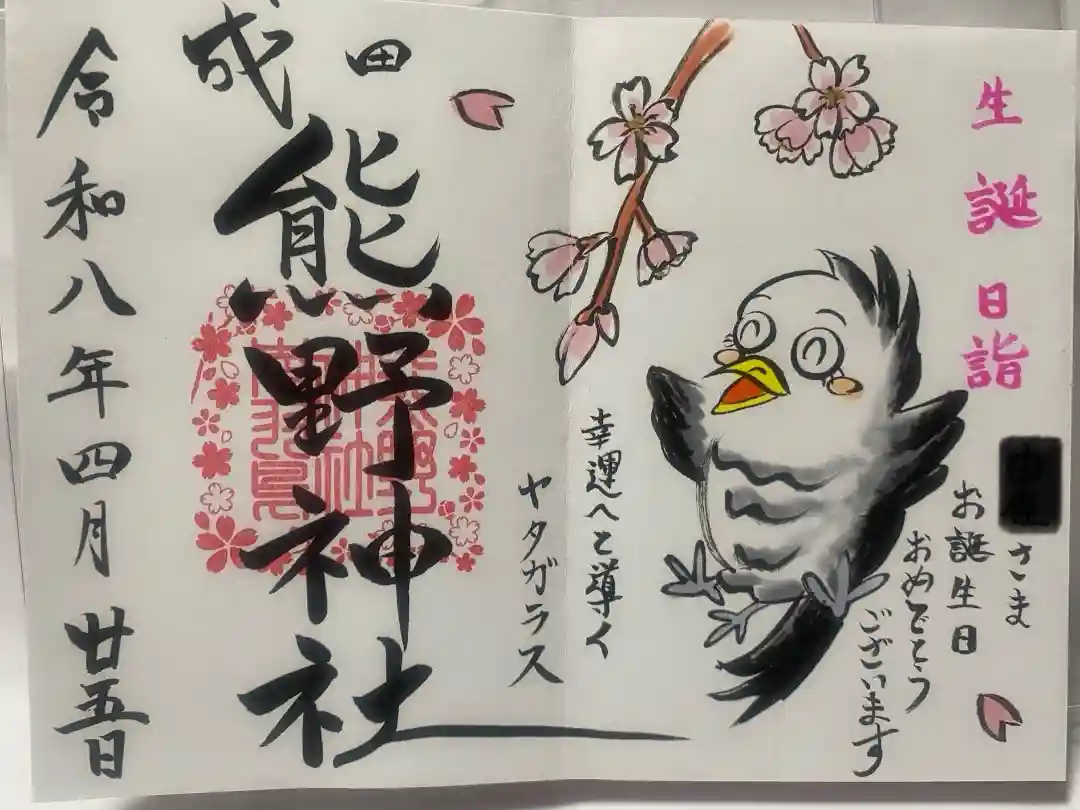 生誕日詣
さま
お誕生日
おめでとう
ございます
幸運へと導く
ヤタガラス
成田
熊野神社
南羽鳥
熊野
神社
令和八年四月廿五日